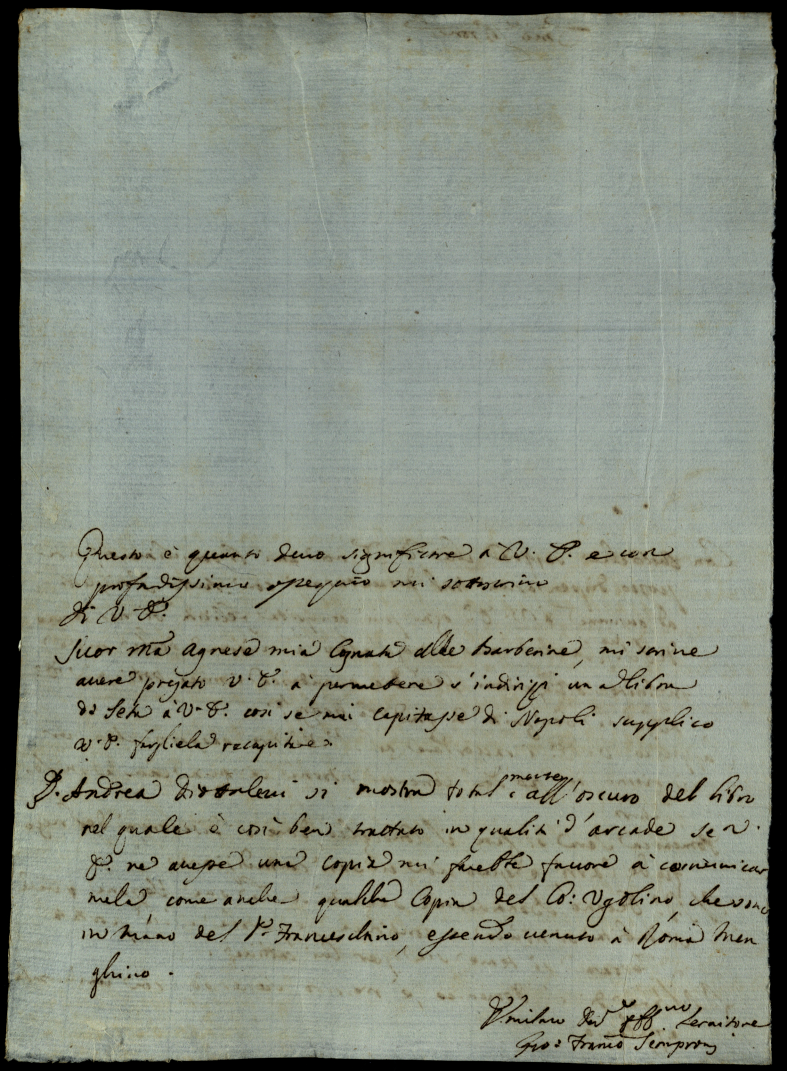 Questo è quanto devo significare à V. P. e con
profondissimo ossequio mi sottoscrivo
di V. P.
Suor Ma Agnese mia Cognata alle Barberine, mi scrive
avere pregato V. P. à permettere s'indirizzi una libra
di Seta à V. P. così se mi capitasse di Napoli supplico
V. P. fargliela recapitare.
D. Andrea si mostra totalmente all'oscuro del libro
nel quale è così ben trattato in qualità d'arcade se V.
P. ne avesse una copia mi farebbe favore à comunicar
mela come anche qualche Copia del Co: Ugolino, che sono
in mano del Sr. Franceschino, essendo venuto à Roma Men
ghino.
Umilmo Devo Obbmo Servitore
Gio: Franco Semproni